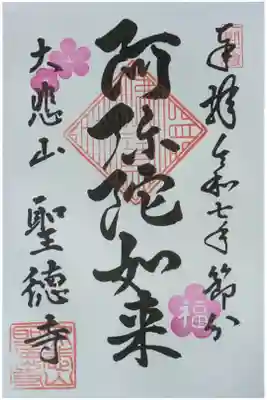 奉拝 令和七年 節分
阿弥陀如来
福
大悲山 聖徳寺